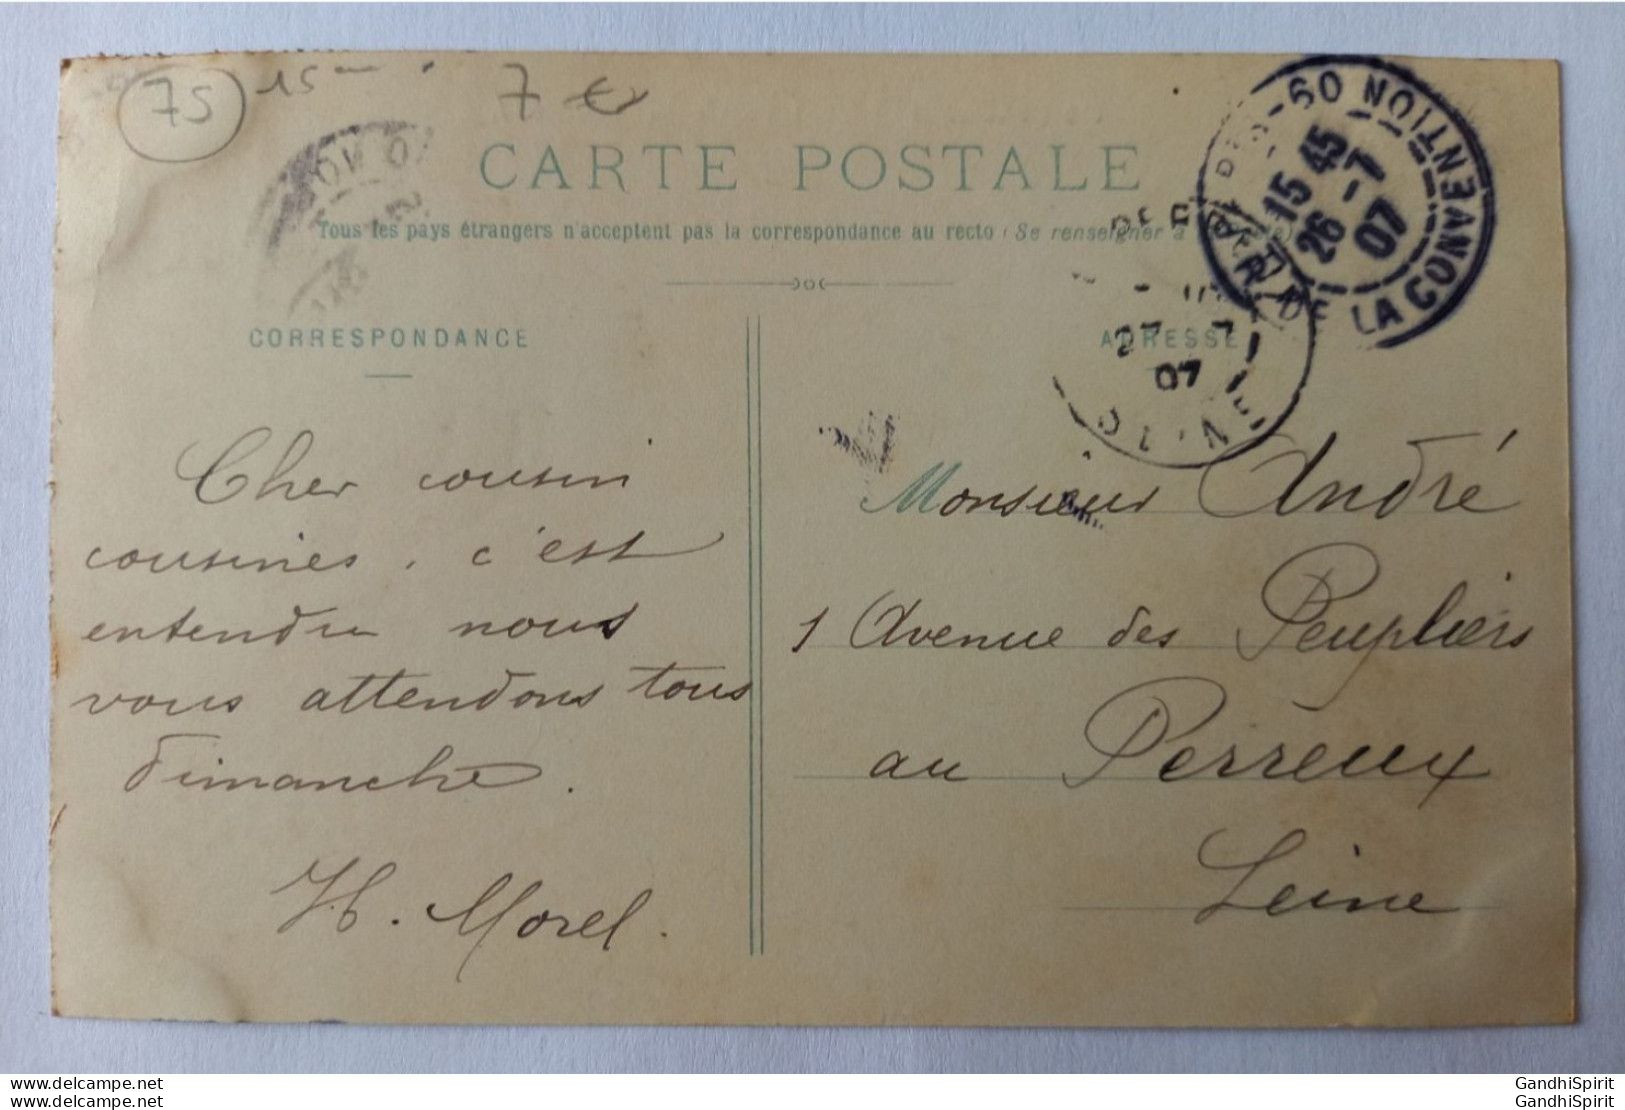 75
15
7 €
CARTE POSTALE
Tous les pays étrangers n'acceptent pas la correspondance au recto (Se renseigner à
PARIS-60
R. DE LA CONVENTION
15 45
26 -7
07
27 7
07
SEINE
CORRESPONDANCE
ADRESSE
Cher cousin
cousines. c'est
entendu nous
vous attendons tous
dimanche.
H. Morel.
Monsieur André
1 Avenue des Peupliers
au Perreux
Seine
www.delcampe.net
www.delcampe.net
GandhiSpirit
GandhiSpirit